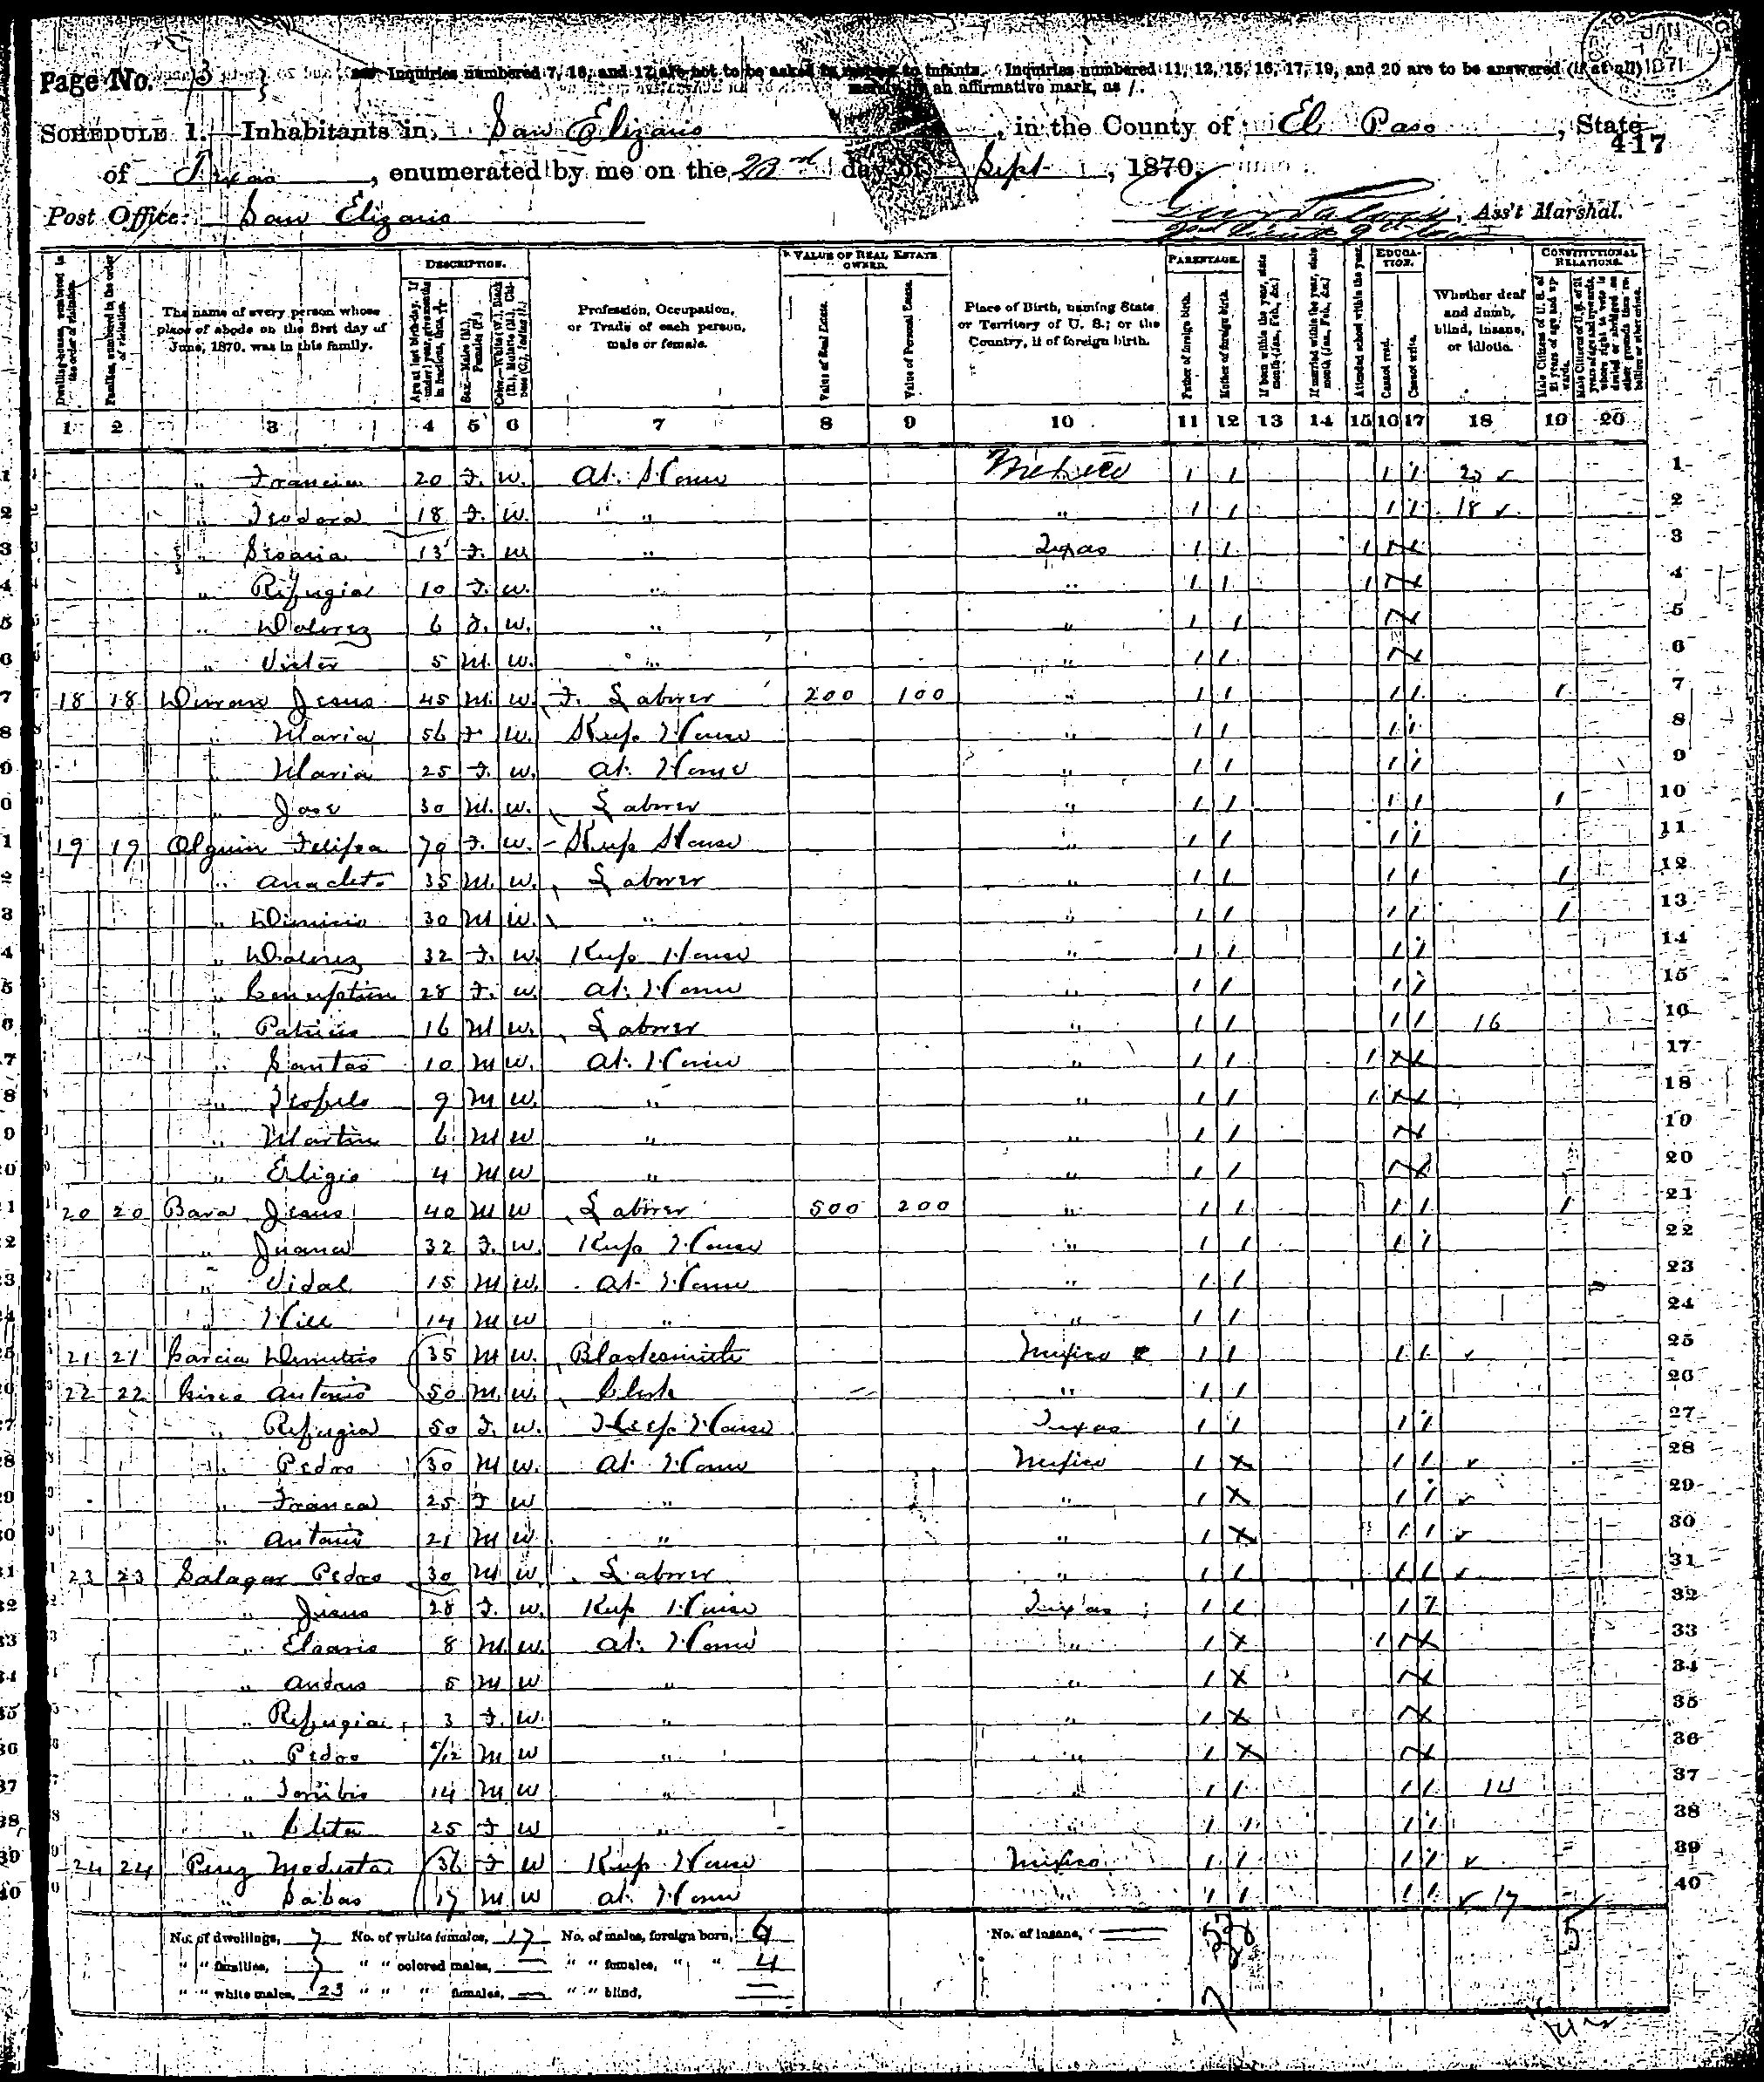 Page No. 3
Inquiries numbered 7, 16, and 17 are not to be asked in respect to infants. Inquiries numbered 11, 12, 15, 16, 17, 19, and 20 are to be answered (if at all)
merely by an affirmative mark, as /.
JAN 1871
SCHEDULE 1.—Inhabitants in San Elizario, in the County of El Paso, State
417
of Texas, enumerated by me on the 23rd day of Sept, 1870.
Post Office: San Elizario
, Ass't Marshal.
DESCRIPTION. VALUE OF REAL ESTATE OWNED. PARENTAGE. EDUCATION. CONSTITUTIONAL RELATIONS.
Dwelling-houses, numbered in the order of visitation.
Families, numbered in the order of visitation.
The name of every person whose place of abode on the first day of June, 1870, was in this family.
Age at last birth-day. If under 1 year, give months in fractions, thus, 3/12
Sex.—Males (M.), Females (F.)
Color.—White (W.), Black (B.), Mulatto (M.), Chinese (C.), Indian (I.)
Profession, Occupation, or Trade of each person, male or female.
Value of Real Estate.
Value of Personal Estate.
Place of Birth, naming State or Territory of U. S.; or the Country, if of foreign birth.
Father of foreign birth.
Mother of foreign birth.
If born within the year, state month (Jan., Feb., &c.)
If married within the year, state month (Jan., Feb., &c.)
Attended school within the year.
Cannot read.
Cannot write.
Whether deaf and dumb, blind, insane, or idiotic.
Male Citizens of U. S. of 21 years of age and upwards.
Male Citizens of U. S. of 21 years of age and upwards, where right to vote is denied or abridged on other grounds than rebellion or other crime.
1 2 3 4 5 6 7 8 9 10 11 12 13 14 15 16 17 18 19 20
1 " 20 F. W. At Home Mexico / / / / 20 ✓ 1
2 " Teodora 18 F. W. " " / / / / 18 ✓ 2
3 " 13 F. W. " Texas / / / 3
4 " Refugia 10 F. W. " " / / / 4
5 " Dolorez 6 F. W. " " / / 5
6 " Victor 5 M. W. " " / / 6
7 18 18 Jesus 45 M. W. F. Laborer 200 100 " / / / / / 7
8 " Maria 56 F W. Keep House " / / / / 8
9 " Maria 25 F. W. At Home " / / / / 9
10 " Jose 30 M. W. Laborer " / / / / / 10
11 19 19 Olguin Felipa 70 F. W. Keep House " / / / / 11
12 " Anacleto 35 M. W. Laborer " / / / / / 12
13 " 30 M W. " " / / / / / 13
14 " Dolorez 32 F. W. Keep House " / / / / 14
15 " Conception 28 F. W. At Home " / / / / 15
16 " Patricio 16 M W. Laborer " / / / / 16 16
17 " Santos 10 M W. At Home " / / / 17
18 " Teofilo 9 M W. " " / / / 18
19 " Martin 6 M W " " / / 19
20 " Eligio 4 M W " " / / 20
21 20 20 Bara Jesus 40 M W Laborer 500 200 " / / / / / 21
22 " Juana 32 F. W. Keep House " / / / / 22
23 " Vidal 15 M W. At Home " / / 23
24 " 14 M W " " / / 24
25 21 21 Garcia Demetrio 35 M W. Blacksmith Mexico / / / / ✓ 25
26 22 22 Antonio 50 M. W. Clerk " / / 26
27 " Refugia 50 F. W. Keep House Texas / / / / 27
28 " Pedro 30 M W. At Home Mexico / X / / ✓ 28
29 " Franca 25 F W " " / X / / ✓ 29
30 " Antonio 21 M W " " / X / / ✓ 30
31 23 23 Salazar Pedro 30 M W. Laborer " / / / / ✓ 31
32 " Jesus 28 F. W. Keep House Texas / / / / 32
33 " 8 M. W. At Home " / X / 33
34 " Andres 5 M W " " / X 34
35 " Refugia 3 F. W. " " / X 35
36 " Pedro 5/12 M W " " / X 36
37 " Toribio 14 M W " " / / / / 14 37
38 " Cleta 25 F W " " / / / / 38
39 24 24 Perez Modesta 36 F W Keep House Mexico / / / / ✓ 39
40 " Sabas 17 M W At Home / / / / ✓ 17 40
No. of dwellings, 7 No. of white females, 17 No. of males, foreign born, 6 No. of insane, 5
" " families, 7 " " colored males, — " " females, " " 4
" " white males, 23 " " " females, — " " blind,